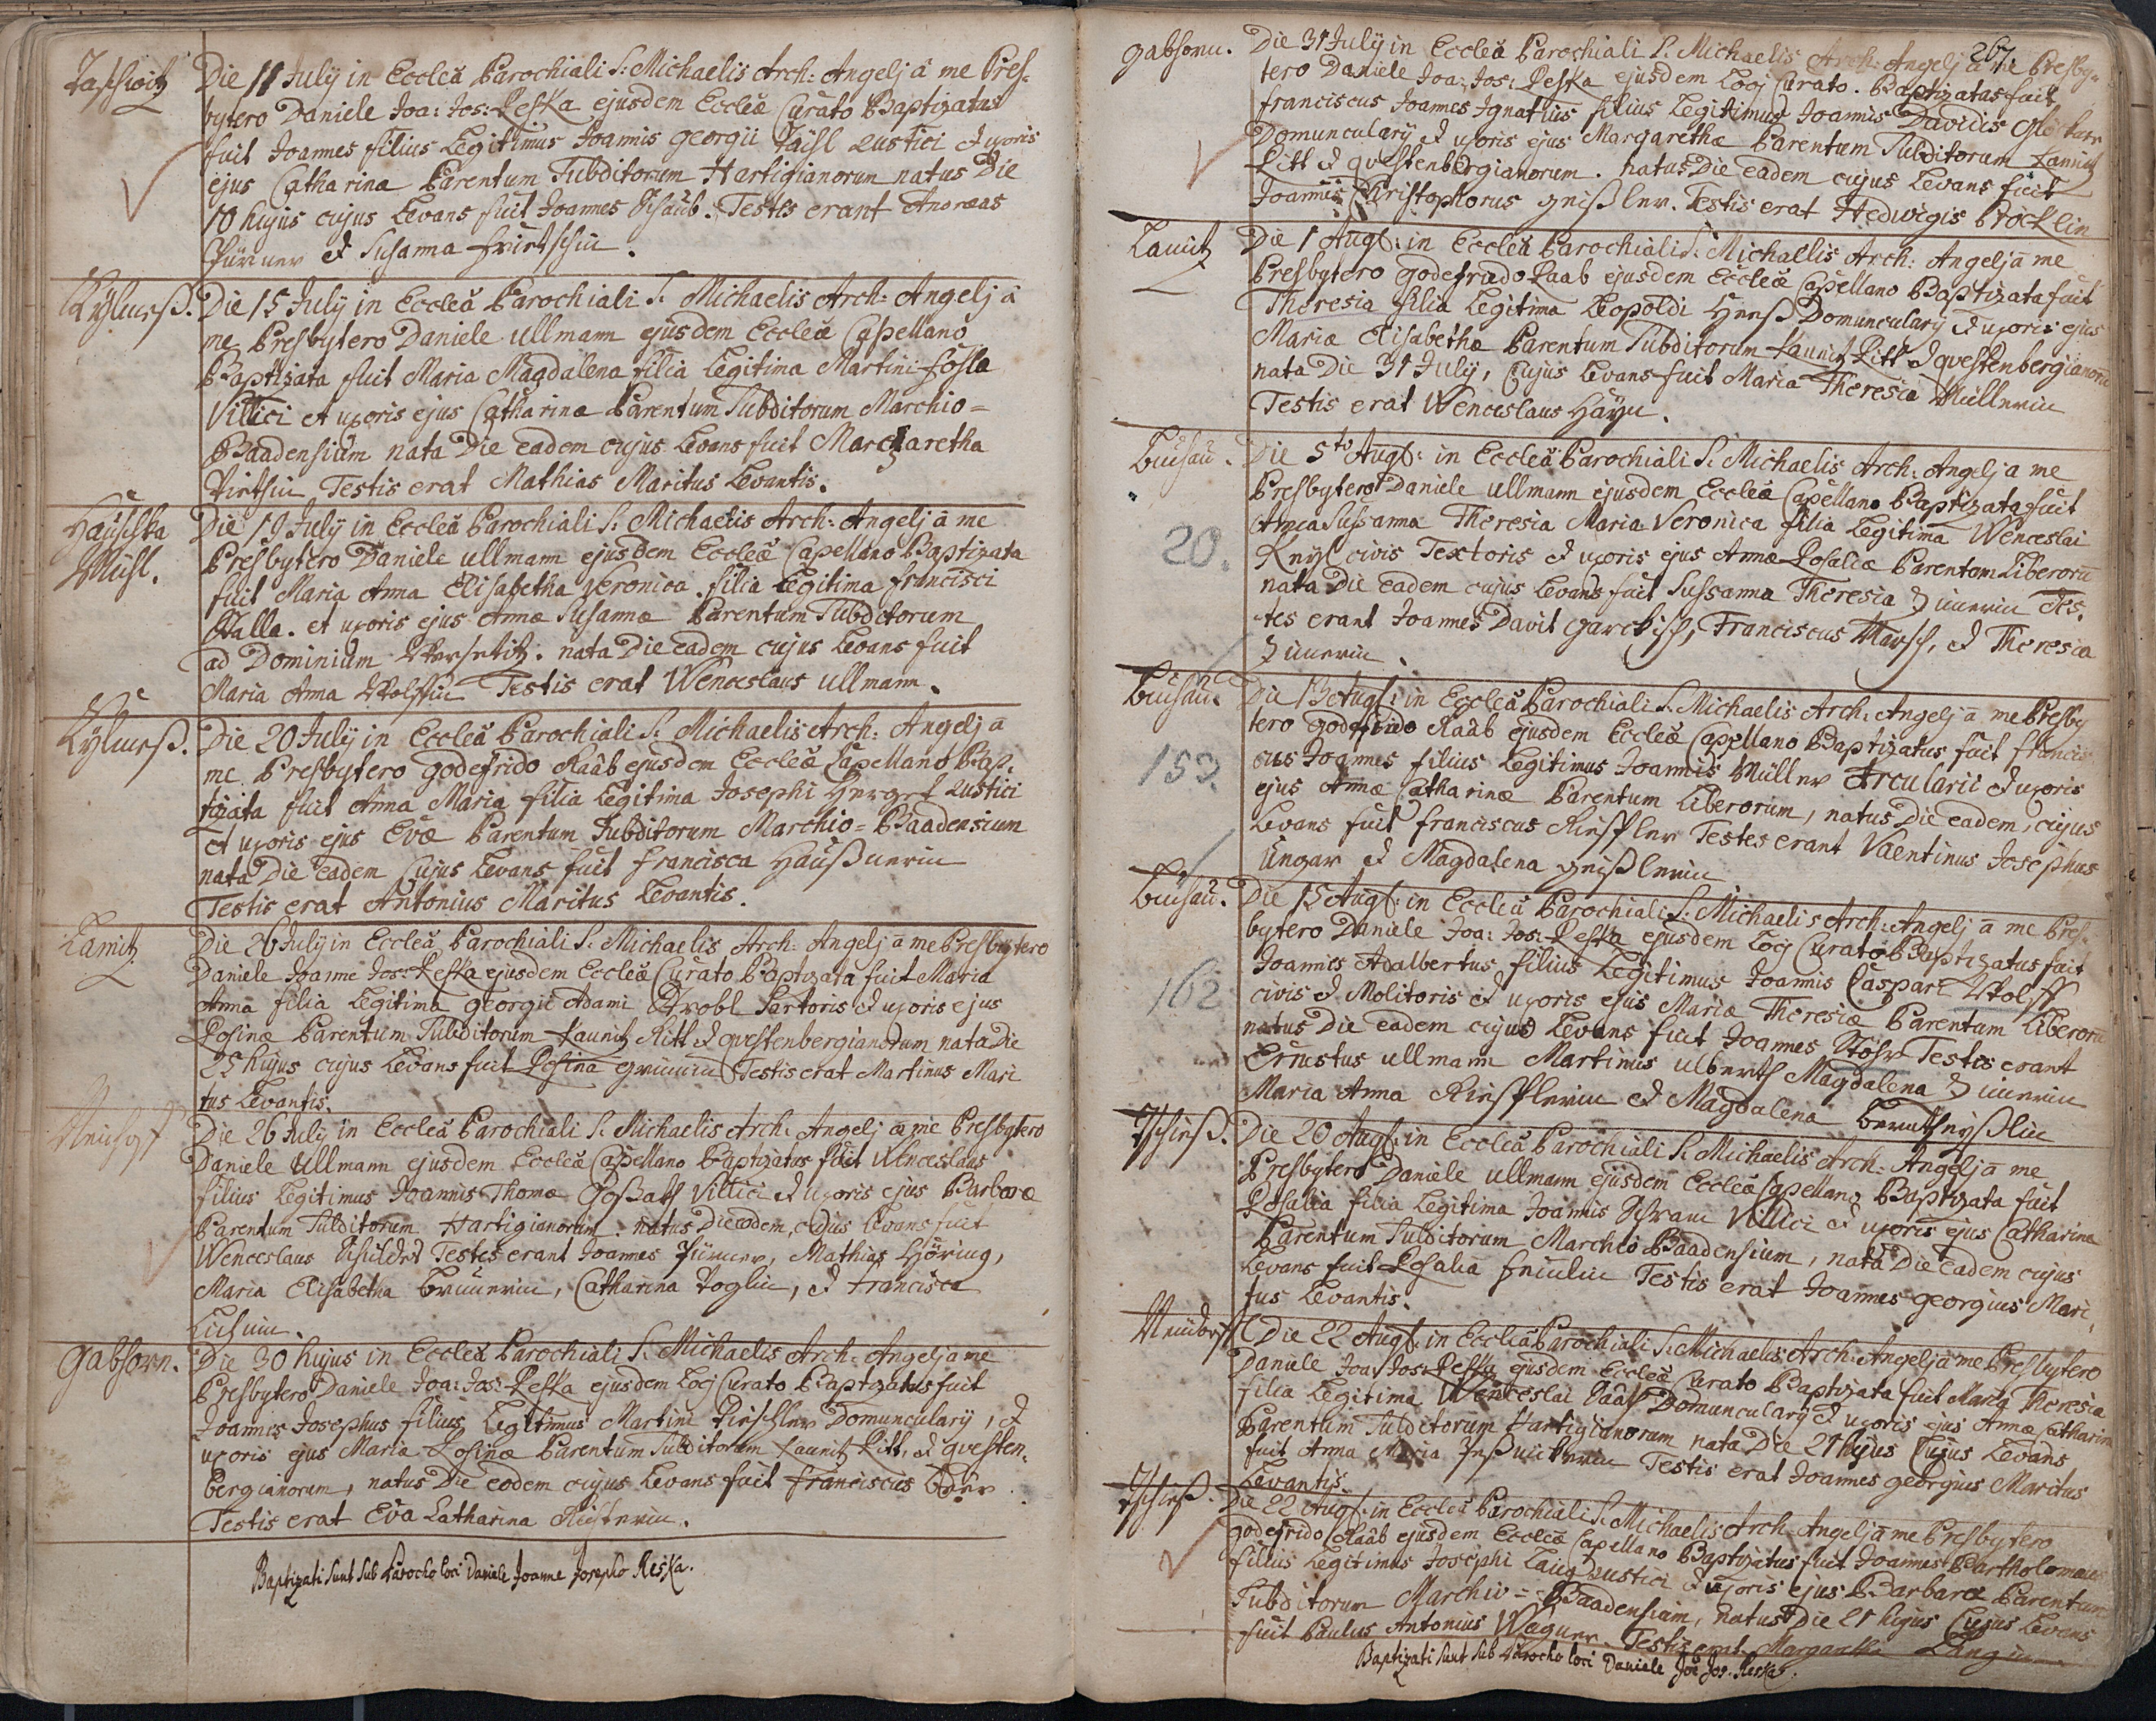 Die 11 July in Ecclea Parochiali S: Michaelis Arch: Angelj â me Pres-
bytero Daniele Joa: Jos: Reska ejusdem Eccleæ Curato Baptizatus
fuit Joannes filius Legitimus Joannis Georgii Rustici et uxoris
ejus Catharinæ Parentum Subditorum Hartigianorum natus Die
10 hujus cujus Levans fuit Joannes Testes erant Andreas
et Susanna
Die 15 July in Ecclea Parochiali S. Michaelis Arch: Angelj â
me Presbytero Daniele Ullmann ejusdem Eccleæ Capellano
Baptizata fuit Maria Magdalena filia Legitima Martini
Villici et uxoris ejus Catharinæ Parentum Subditorum Marchio=
Baadensium nata Die eadem cujus Levans fuit Margaretha
Testis erat Mathias Maritus Levantis.
Die 19 July in Ecclea Parochiali S: Michaelis Arch: Angelj â me
Presbytero Daniele Ullmann ejusdem Eccleæ Capellano Baptizata
fuit Maria Anna Elisabetha Veronica filia Legitima Francisci
Halla. et uxoris ejus Annæ Susannæ Parentum Subditorum
ad Dominium nata Die eadem cujus Levans fuit
Maria Anna Wolffin Testis erat Wenceslaus Ullmann.
Die 20 July in Ecclea Parochiali S. Michaelis Arch: Angelj â
me Presbytero Godefrido Raab ejusdem Eccleæ Capellano Bap-
tizata fuit Anna Maria filia Legitima Josephi Rustici
et uxoris ejus Evæ Parentum Subditorum Marchio=Baadensium
nata Die eadem Cujus Levans fuit Francisca
Testis erat Antonius Maritus Levantis.
Lamitz
Die 26 July in Ecclea Parochiali S. Michaelis Arch: Angelj â me Presbytero
Daniele Joanne Jos: Reska ejusdem Eccleæ Curato Baptizata fuit Maria
Anna filia Legitima Georgii Adami Strobl Sartoris et uxoris ejus
Rosinæ Parentum Subditorum Kaunitz Ritt et Questenbergianorum nata Die
25 hujus cujus Levans fuit Rosina Testis erat Martinus Mari
tus Levantis.
Die 26 July in Ecclea Parochiali S. Michaelis Arch: Angelj â me Presbytero
Daniele Ullmann ejusdem Eccleæ Capellano Baptizatus fuit Wenceslaus
filius Legitimus Joannis Thomæ Villici et uxoris ejus Barbaræ
Parentum Subditorum Hartigianorum natus Die eadem, cujus Levans fuit
Wenceslaus Testes erant Joannes Mathias Höring,
Maria Elisabetha Catharina Voglin, et Francisca
Gabhorn.
Die 30 hujus in Ecclea Parochiali S. Michaelis Arch: Angelj â me
Presbytero Daniele Joa: Jos: Reska ejusdem Locj Curato Baptizatus fuit
Joannes Josephus filius Legitimus Martini Domuncularij, et
uxoris ejus Mariæ Rosinæ Parentum Subditorum Kaunitz Ritt. et Questen-
bergianorum, natus Die eodem cujus Levans fuit Franciscus
Testis erat Eva Catharina
Baptizati Sunt Sub Parocho loci Daniele Joanne Josepho Reska.
267
Gabhorn.
Die 31 July in Ecclea Parochiali S. Michaelis Arch: Angelj â me Presby-
tero Daniele Joa: Jos: Reska ejusdem Locj Curato. Baptizatus fuit
Franciscus Joannes Ignatius filius Legitimus Joannis Davidis
Domuncularij et uxoris ejus Margarethæ Parentum Subditorum Kaunitz
Ritt et Questenbergianorum. natus Die eadem cujus Levans fuit
Joannes Christophorus Geißler. Testis erat Hedwigis Bröcklin
Lamitz
Die 1 Aug: in Ecclea Parochiali S: Michaelis Arch: Angelj â me
Presbytero Godefrido Raab ejusdem Eccleæ Capellano Baptizata fuit
Theresia filia Legitima Leopoldi Domuncularij et uxoris ejus
Mariæ Elisabethæ Parentum Subditorum Kaunitz Ritt et Questenbergianorū
nata Die 31 July, Cujus Levans fuit Maria Theresia Müllerin
Testis erat Wenceslaus
Buchau.
Die 5to Aug: in Ecclea Parochiali S. Michaelis Arch: Angelj a me
Presbytero Daniele Ullmann ejusdem Eccleæ Capellano Baptizata fuit
20.
Anna Sussanna Theresia Maria Veronica filia Legitima Wenceslai
civis Textoris et uxoris ejus Annæ Rosaliæ Parentum Liberorū
nata Die eadem cujus Levans fuit Sussanna Theresia Tes-
tes erant Joannes Davit Franciscus et Theresia
Buchau.
Die 13 Aug: in Ecclea Parochiali S. Michaelis Arch: Angelj â me Presby
tero Godefrido Raab ejusdem Eccleæ Capellano Baptizatus fuit Francis
153.
cus Joannes filius Legitimus Joannis Müller Arcularii et uxoris
ejus Annæ Catharinæ Parentum Liberorum, natus Die eadem, cujus
Levans fuit Franciscus Testes erant Valentinus Josephus
Ungar et Magdalena Geißlerin
Buchau.
Die 15 Aug: in Ecclea Parochiali S: Michaelis Arch: Angelj â me Pres-
bytero Daniele Joa: Jos: Reska ejusdem Locj Curato Baptizatus fuit
162
Joannes Adalbertus filius Legitimus Joannis Caspari Wolff
civis et Molitoris et uxoris ejus Mariæ Theresiæ Parentum Liberorū
natus Die eadem cujus Levans fuit Joannes Stöhr Testes erant
Ernestus Ullmann Martinus Magdalena
Maria Anna et Magdalena
Die 20 Aug: in Ecclea Parochiali S. Michaelis Arch: Angelj â me
Presbytero Daniele Ullmann ejusdem Eccleæ Capellano Baptizata fuit
Rosalia filia Legitima Joannis Villici et uxoris ejus Catharinæ
Parentum Subditorum Marchio Baadensium, nata Die eadem cujus
Levans fuit Rosalia Testis erat Joannes Georgius Mari
tus Levantis.
Neudorff
Die 22 Aug: in Ecclea Parochiali S. Michaelis Arch: Angelj â me Presbytero
Daniele Joa: Jos: Reska ejusdem Eccleæ Curato Baptizata fuit Maria Theresia
filia Legitima Wenceslai Domuncularij et uxoris ejus Annæ Catharinæ
Parentum Subditorum Hartigianorum nata Die 21 hujus Cujus Levans
fuit Anna Maria Testis erat Joannes Georgius Maritus
Levantis.
Die 22 Aug: in Ecclea Parochiali S. Michaelis Arch: Angelj â me Presbytero
Godefrido Raab ejusdem Eccleæ Capellano Baptizatus fuit Joannes Bartholomæus
filius Legitimus Josephi Lang Rustici et uxoris ejus Barbaræ Parentum
Subditorum Marchio=Baadensium, natus Die 21 hujus Cujus Levans
fuit Paulus Antonius Wagner. Testis erat Margaretha Langin
Baptizati Sunt Sub Parocho loci Daniele Joē Jos. Reska.